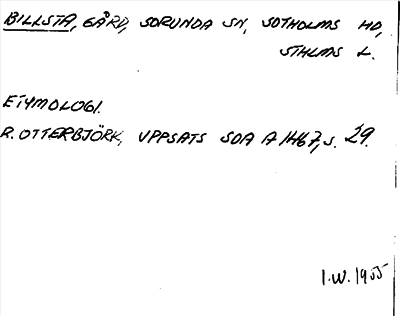 BILLSTA, GÅRD, SORUNDA SN, SOTHOLMS HD,
STHLMS L.
ETYMOLOGI.
R. OTTERBJÖRK, UPPSATS SOA A 1467, s. 29.
I.W. 1955